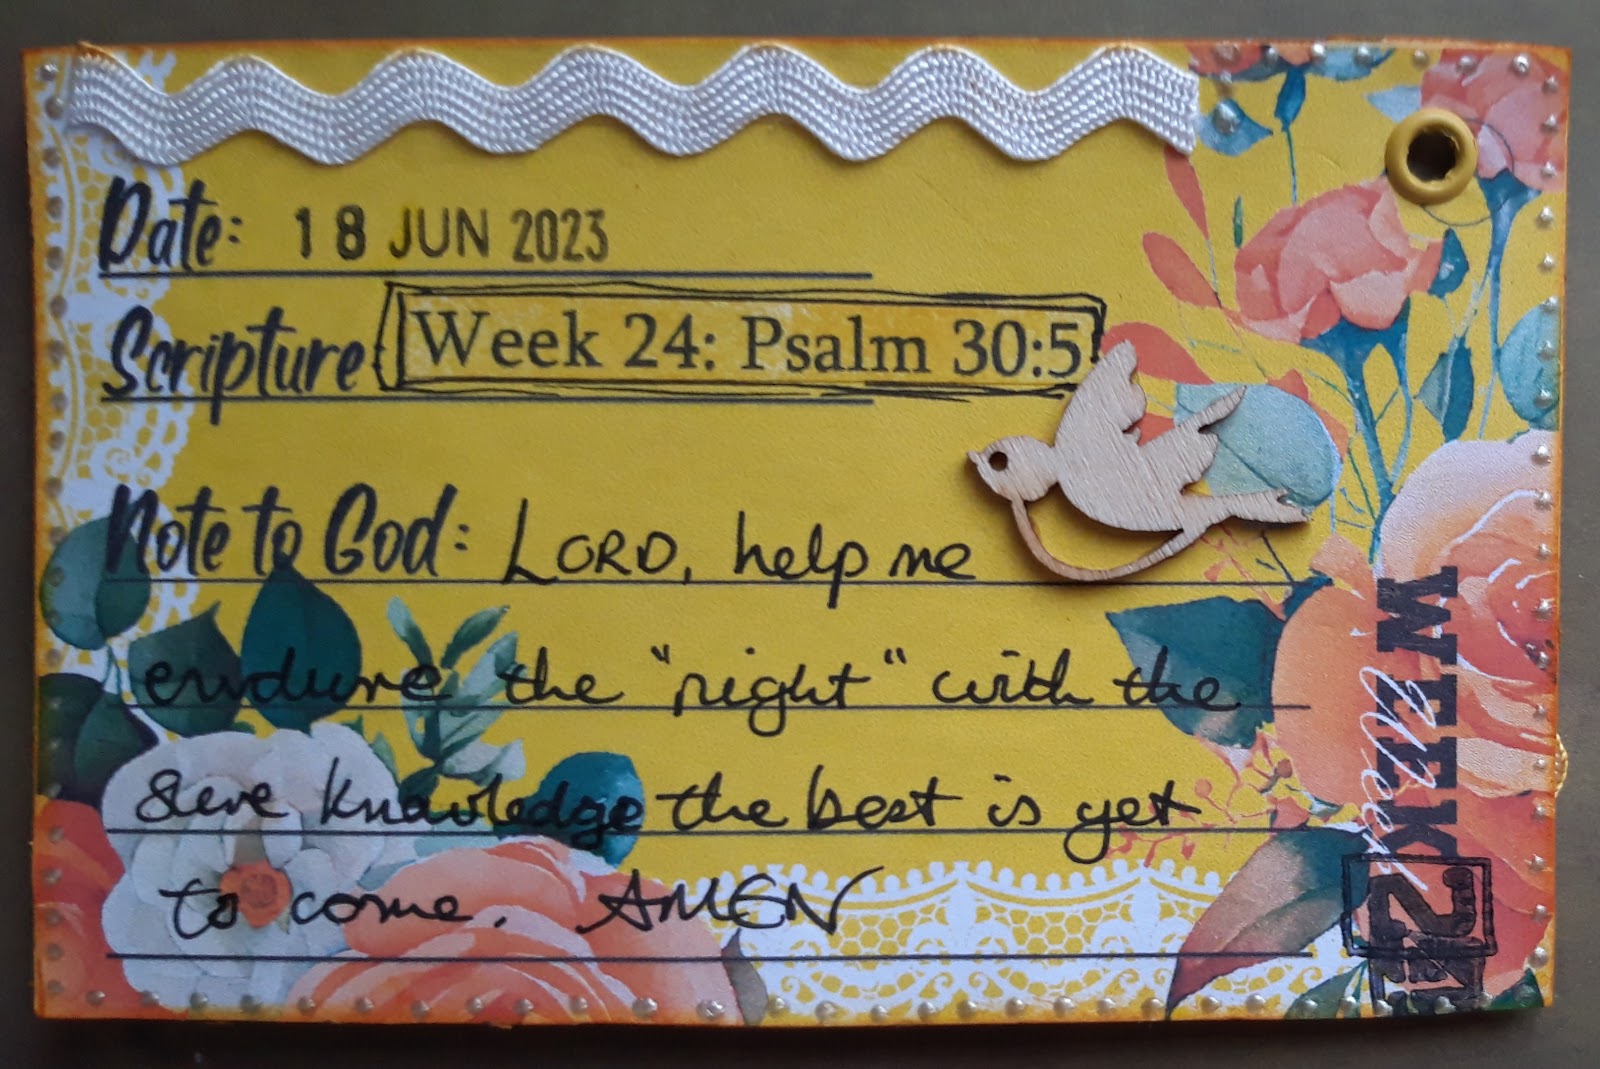 Date: 18 JUN 2023
Scripture: Week 24: Psalm 30:5
Note to God: LORD, help me
endure the "night" with the
sure knowledge the best is yet
to come. AMEN
WEEK